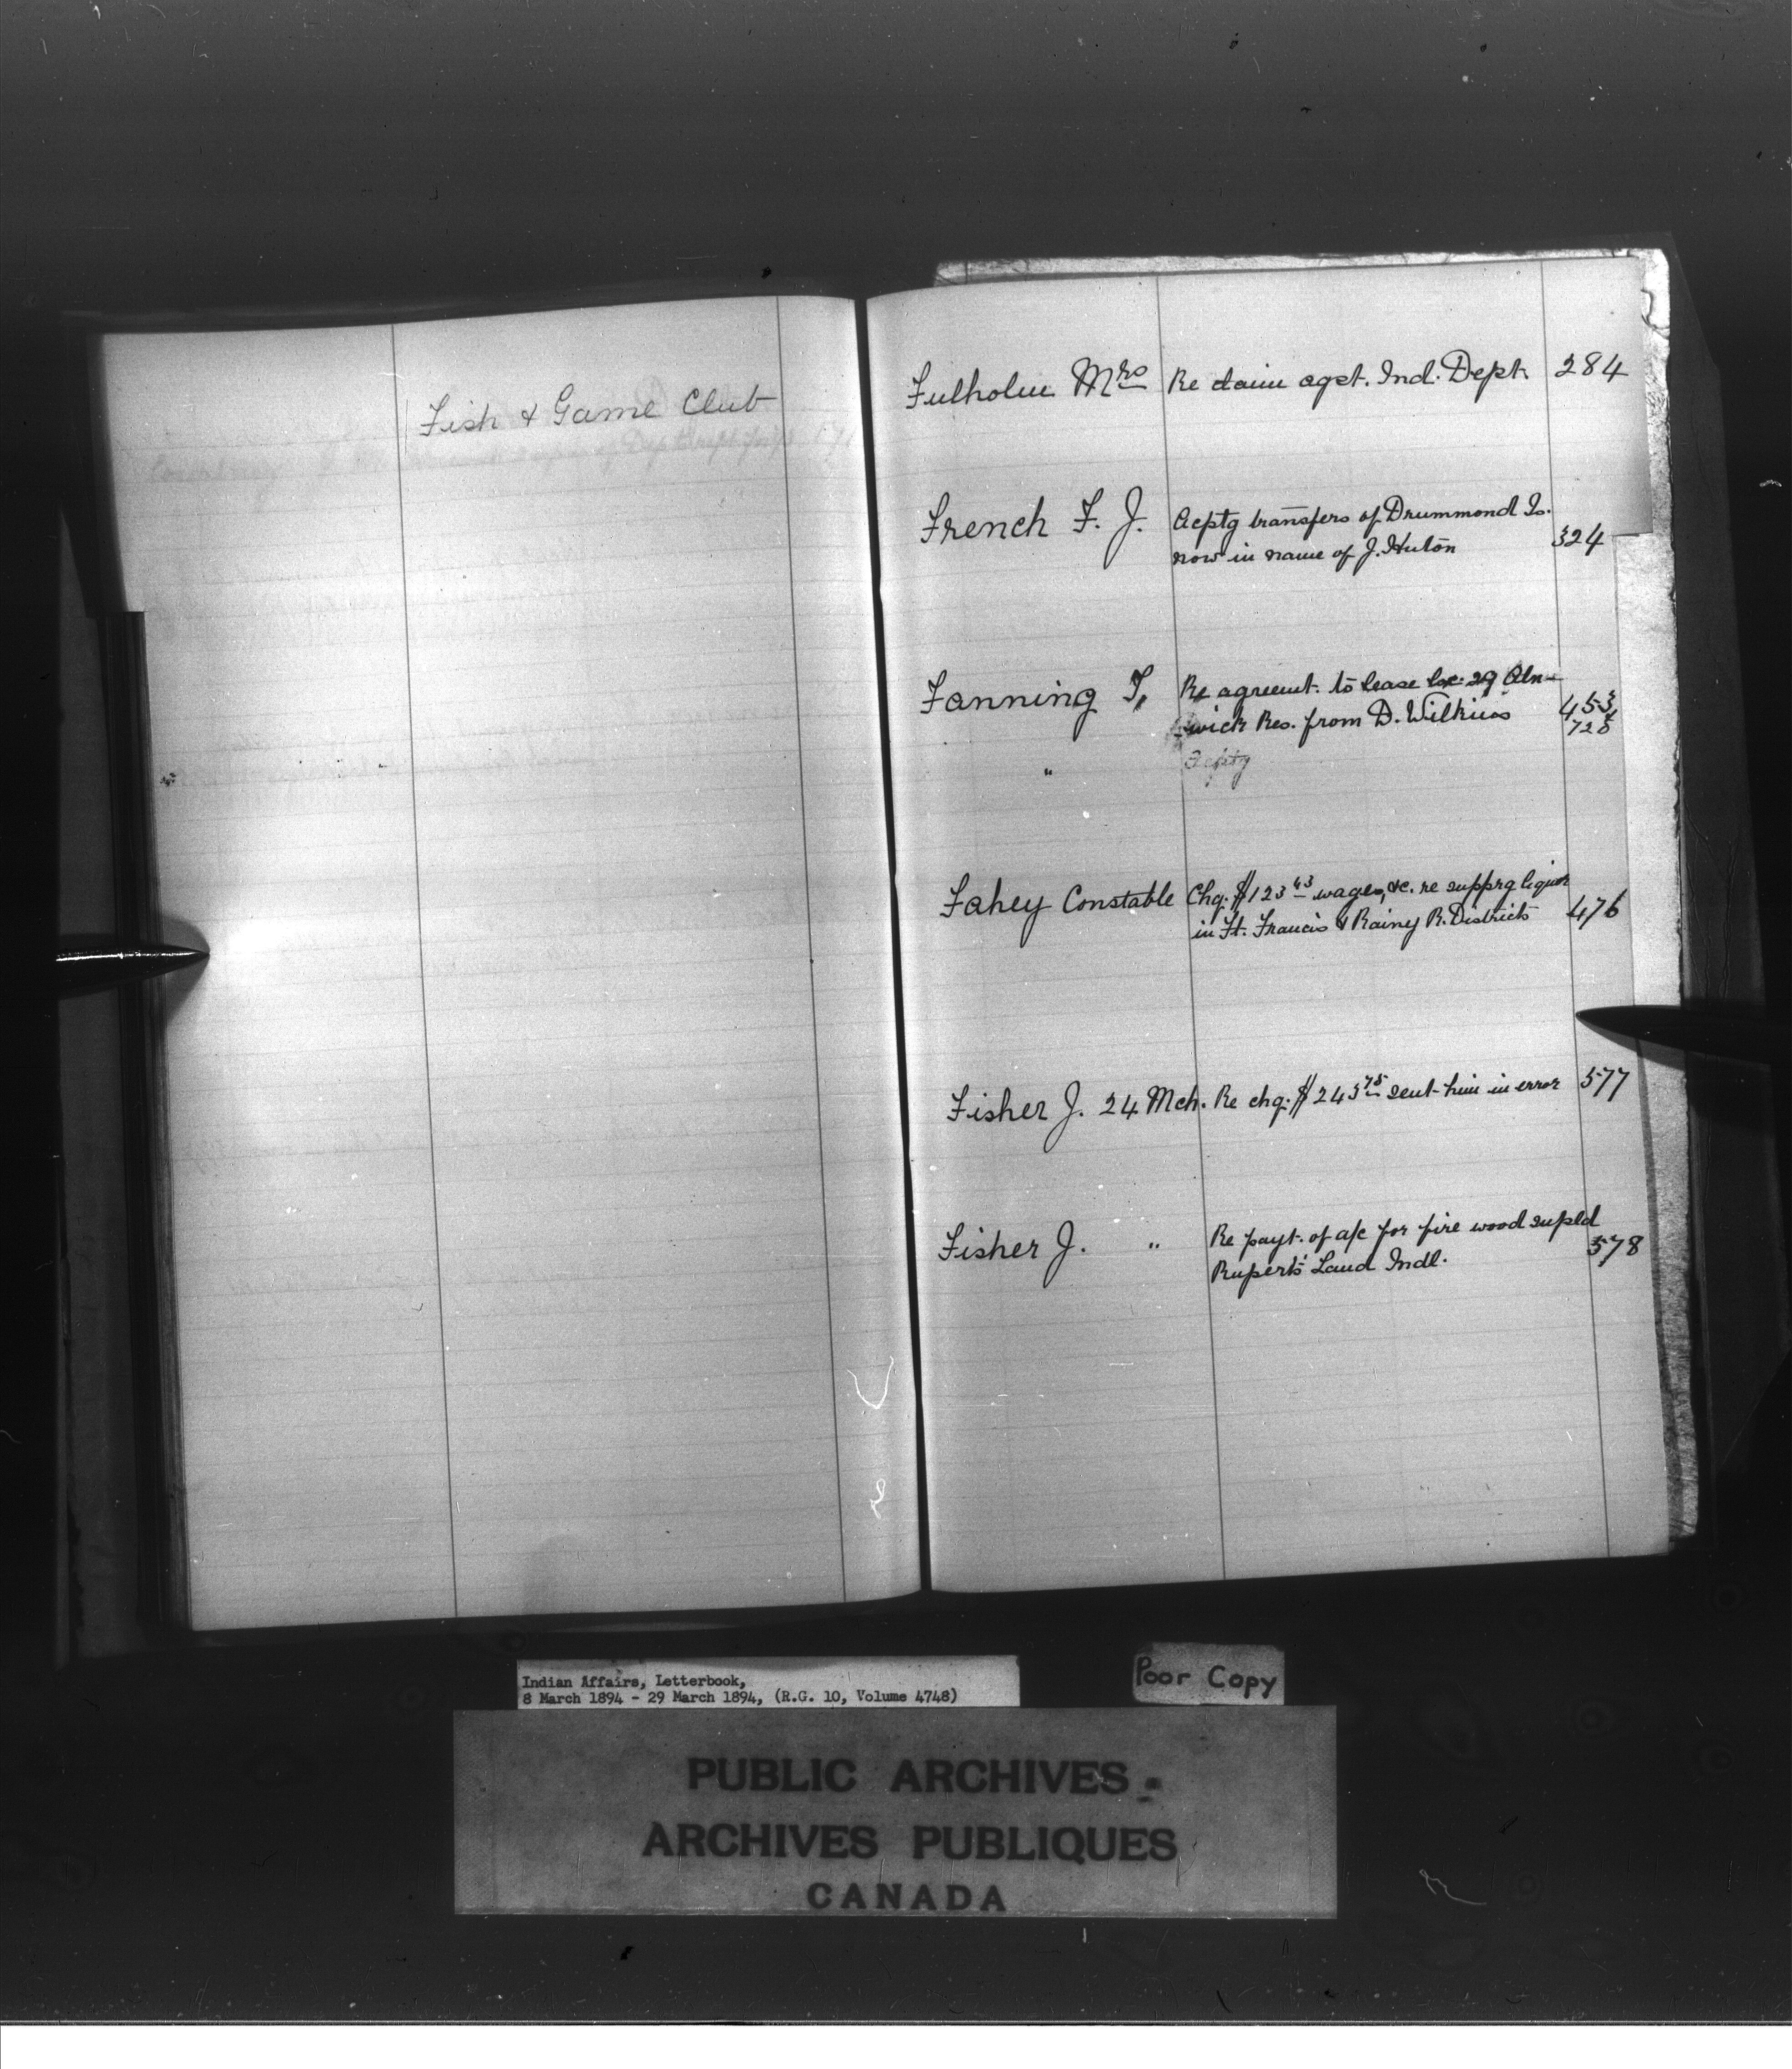 Fish & Game Club
Fulholm Mrs Re claim agst. Ind. Dept. 284
French F. J. Acptg transfers of Drummond Is.
now in name of J. Huton 324
Fanning T. Re agreemt. to lease 29 Aln-
wick Res. from D. Wilkins 453
728
" Acptg
Fahey Constable Chq. $123 43 wages, &c. re supprg liquor
in Ft. Francis & Rainy R. Districts 476
Fisher J. 24 Mch. Re chq. $243 75 sent him in error 577
Fisher J. " Re payt. of a/c for fire wood supld
Rupert's Land Indl. 578
Indian Affairs, Letterbook,
8 March 1894 - 29 March 1894, (R.G. 10, Volume 4748)
Poor Copy
PUBLIC ARCHIVES
ARCHIVES PUBLIQUES
CANADA